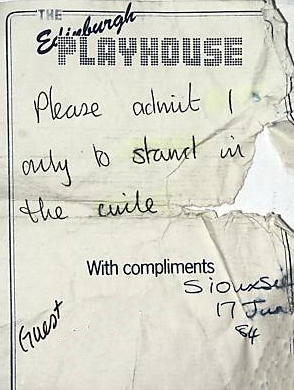 THE
Edinburgh
PLAYHOUSE
Please admit 1
only to stand in
the circle
With compliments
Siouxsie
17 Jun
84
Guest